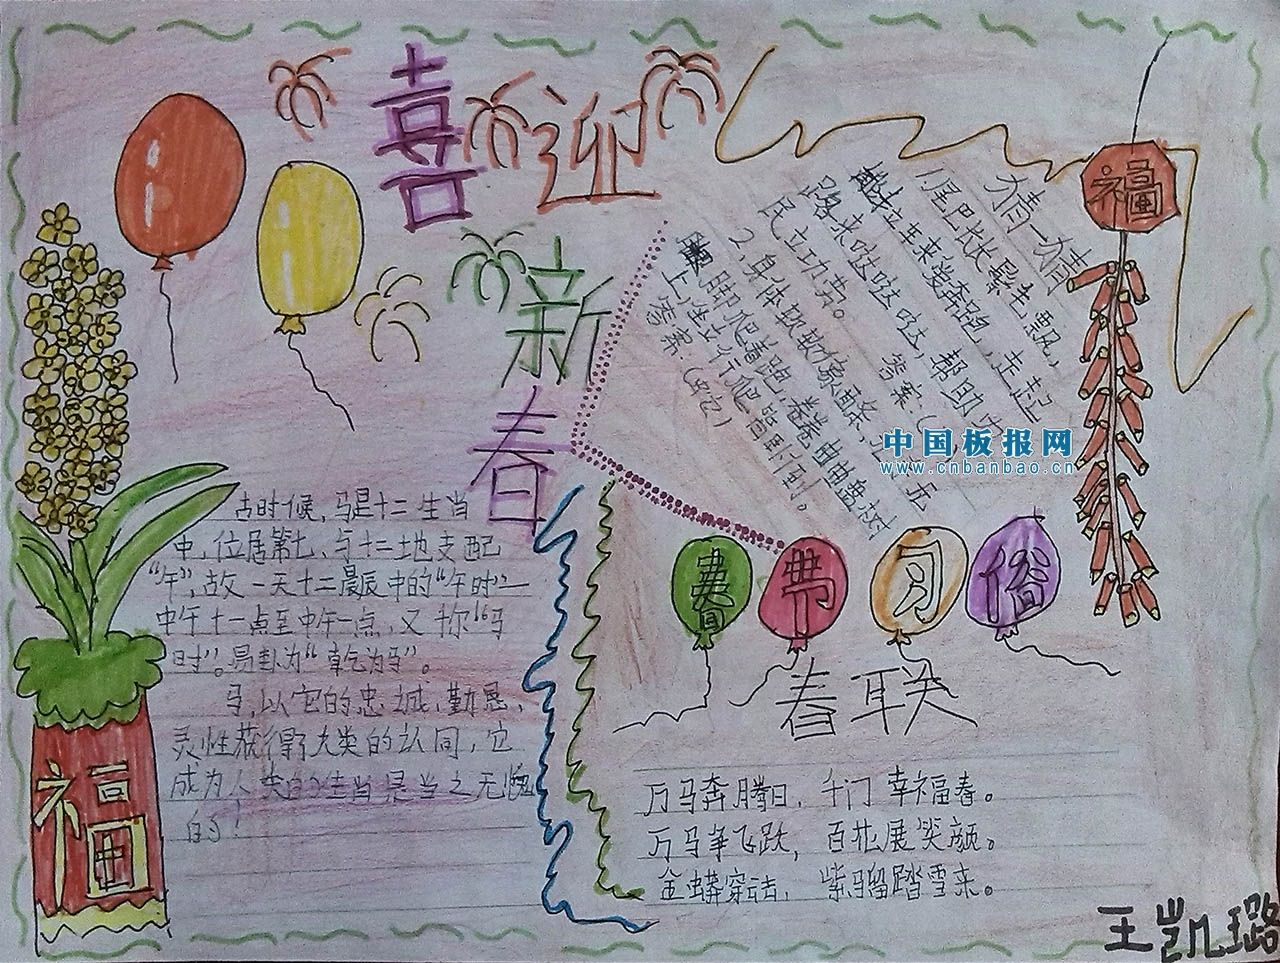 喜迎
新
春
福
猜一猜
1尾巴长长鬃毛飘,
拉车来送奔跑,走起
路来哒哒哒,帮助
民立功劳。 答案:(
2、身体软软像酥,
脚爬着跑,卷卷曲曲盘树
上,坐立行爬
答案:(蛇)
中国板报网
www.cnbanbao.cn
古时候,马是十二生肖
中,位居第七,与十二地支配
“午”,故一天十二晨辰中的“午时”—
中午十一点至中午一点,又称“马
时”。易卦为“乾为马”。
马,以它的忠诚,勤恳,
灵性获得了人类的认同,它
成为人类的生肖是当之无愧
的!
福
春节习俗
春联
万马奔腾日,千门幸福春。
万马争飞跃,百花展笑颜。
金蟒穿云去,紫骝踏雪来。
王凯璐